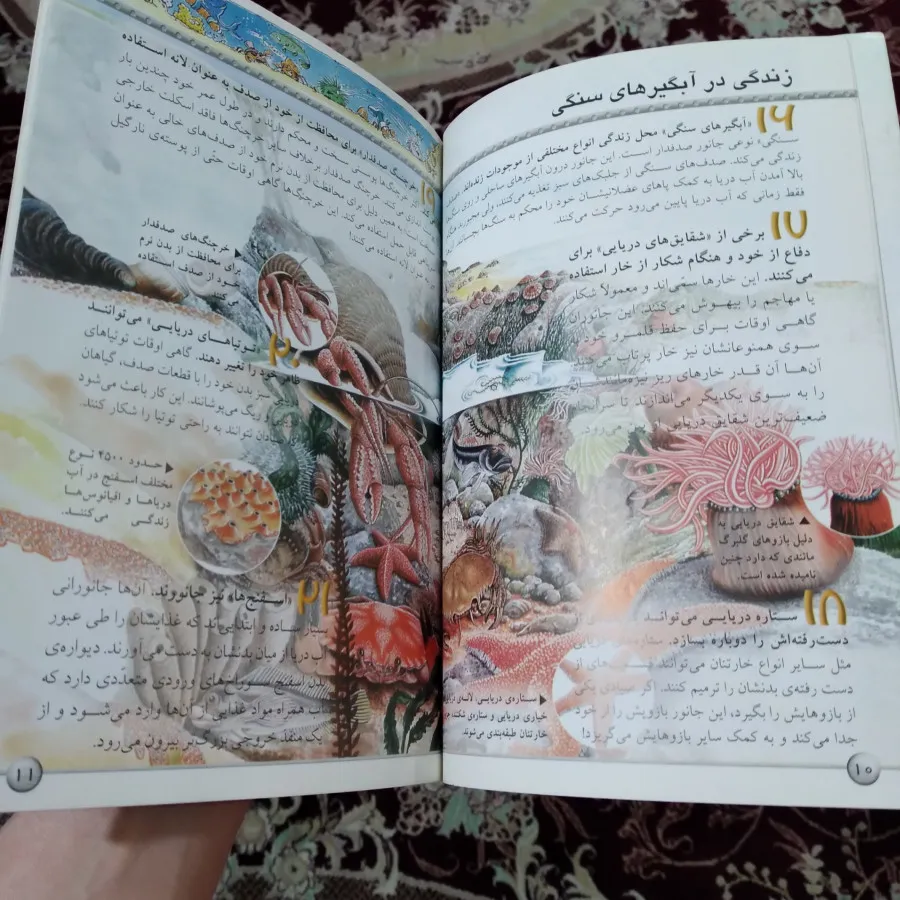 زندگی در آبگیرهای سنگی
۱۶ «آبگیرهای سنگی» محل زندگی انواع مختلفی از موجودات زنده‌اند
سنگی» نوعی جانور صدفدار است. این جانور درون آبگیرهای ساحلی و از روی
زندگی می‌کند. صدف‌های سنگی از جلبک‌های سبز تغذیه می‌کنند، ولی
بالا آمدن آب دریا به کمک پاهای عضلانیشان خود را محکم به سنگ‌ها
فقط زمانی که آب دریا پایین می‌رود حرکت می‌کنند.
۱۷ برخی از «شقایق‌های دریایی» برای
دفاع از خود و هنگام شکار از خار استفاده
می‌کنند. این خارها سمی‌اند و معمولاً شکار
یا مهاجم را بیهوش می‌کنند. این جانوران
گاهی اوقات برای حفظ قلمرو خود
سوی همنوعانشان نیز خار پرتاب
آن‌ها آن قدر خارهای ریز
را به سوی یکدیگر می‌اندازند تا
ضعیف‌ترین شقایق دریایی از
▲ شقایق دریایی به
دلیل بازوهای گلبرگ
مانندی که دارد چنین
نامیده شده است.
۱۸ ستاره دریایی می‌تواند
دست‌رفته‌اش را دوباره بسازد. ستاره
مثل سایر انواع خارتنان می‌توانند از
دست رفته‌ی بدنشان را ترمیم کنند. اگر یکی
از بازوهایش را بگیرد، این جانور بازویش را از خود
جدا می‌کند و به کمک سایر بازوهایش می‌گریزد!
◀ ستاره‌ی دریایی، لاله‌ی
خیاری دریایی و ستاره‌ی
خارتنان طبقه‌بندی می‌شوند
۱۰
۱۹ صدفدار» برای محافظت از خود از صدف به عنوان لانه استفاده
پوستی سخت و محکم دارند و در طول عمر خود چندین بار
خرچنگ صدفدار بر خلاف سایر خرچنگ‌ها فاقد اسکلت خارجی
همین دلیل برای محافظت از بدن نرم خود از صدف‌های خالی به عنوان
قابل حمل استفاده می‌کند. این خرچنگ‌ها گاهی اوقات حتی از پوسته‌ی نارگیل
لانه استفاده می‌کنند!
◀ خرچنگ‌های صدفدار
برای محافظت از بدن نرم
خود از صدف استفاده
۲۰ «توتیاهای دریایی» می‌توانند
ظاهر خود را تغییر دهند. گاهی اوقات توتیاهای
بدن خود را با قطعات صدف، گیاهان
می‌پوشانند. این کار باعث می‌شود
نتوانند به راحتی توتیا را شکار کنند.
◀ حدود ۴۵۰۰ نوع
مختلف اسفنج در آب
دریاها و اقیانوس‌ها
زندگی می‌کنند.
۲۱ «اسفنج‌ها» نیز جانورند. آن‌ها جانورانی
بسیار ساده و ابتدایی‌اند که غذایشان را طی عبور
آب دریا از میان بدنشان به دست می‌آورند. دیواره‌ی
بدن اسفنج سوراخ‌های ورودی متعددی دارد که
آب همراه مواد غذایی از آن‌ها وارد می‌شود و از
یک منفذ خروجی بزرگ‌تر بیرون می‌رود.
۱۱